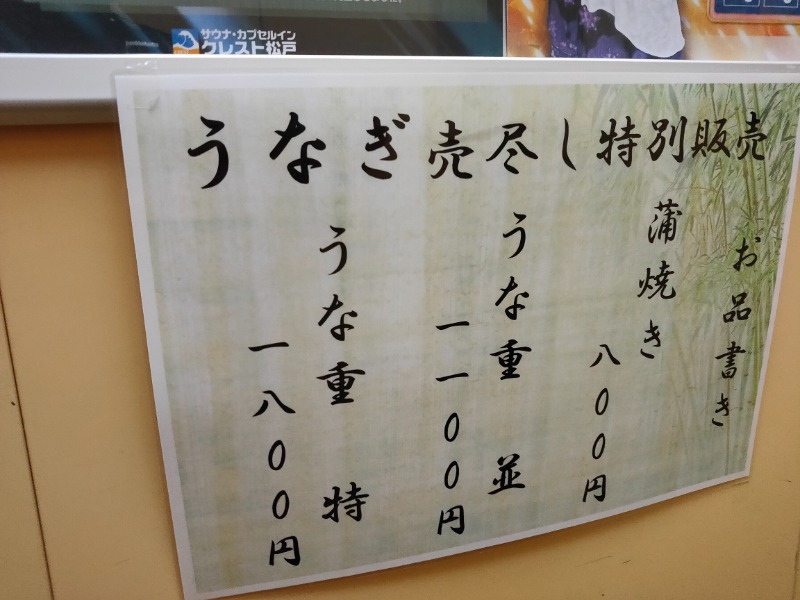 サウナ・カプセルイン
クレスト松戸
うなぎ売尽し特別販売
お品書き
蒲焼き
八００円
うな重 並
一一００円
うな重 特
一八００円